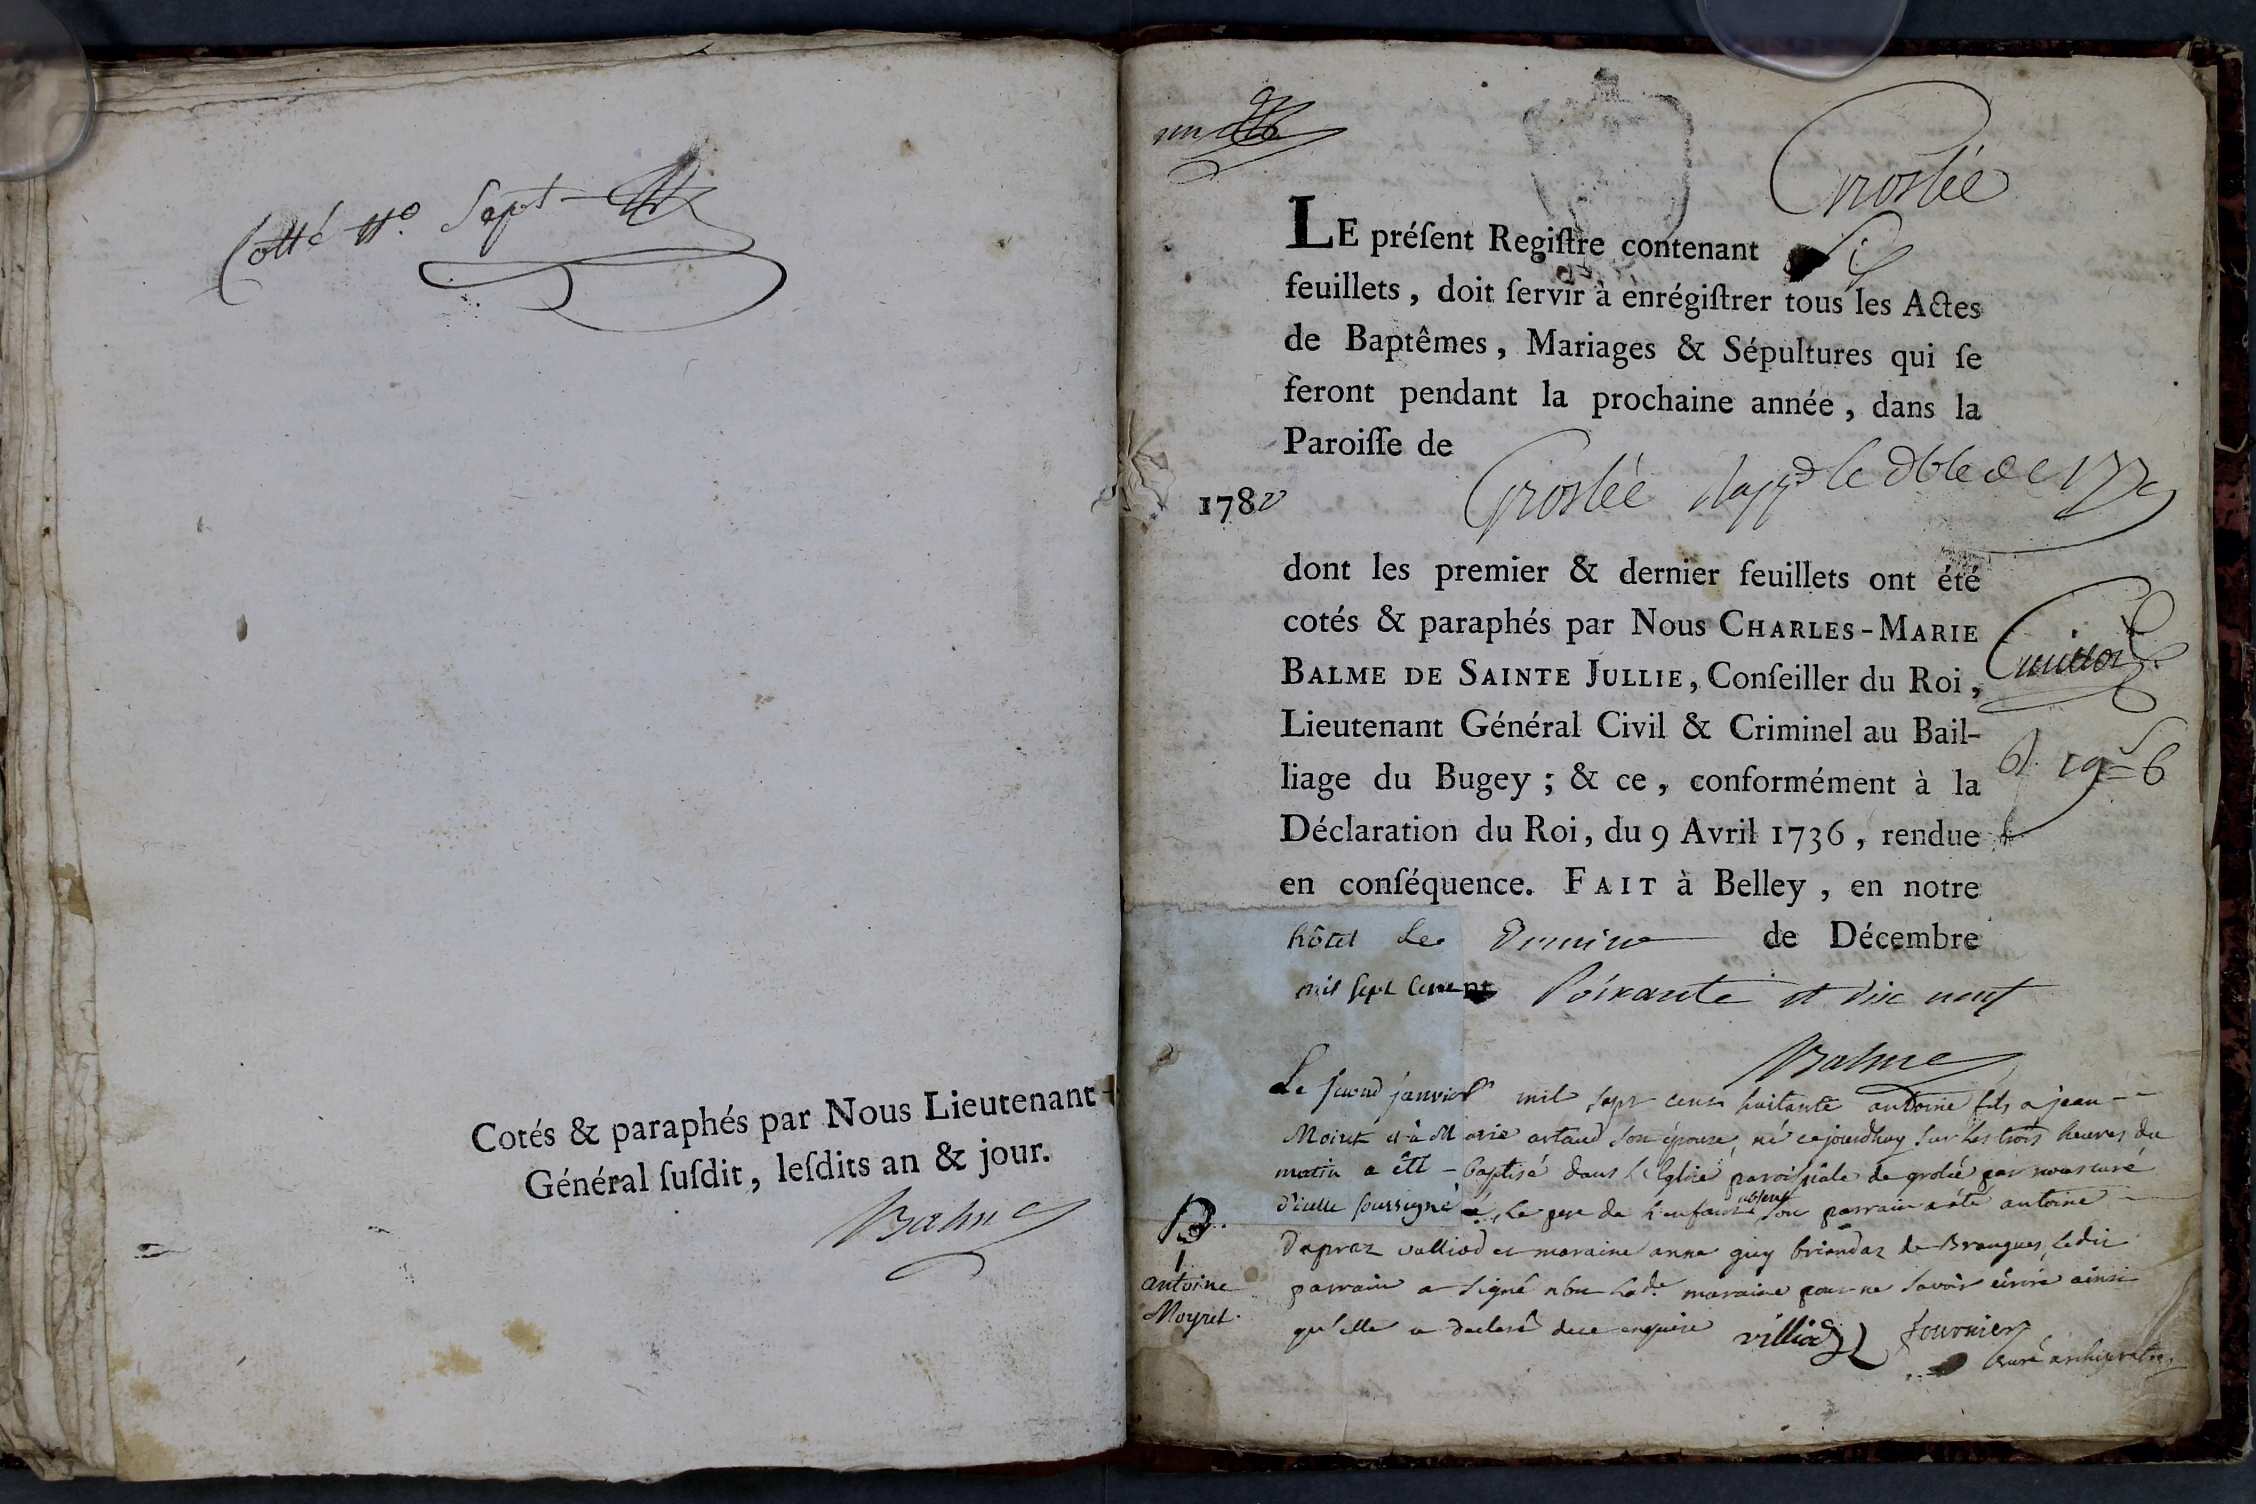 Cotté N.º Sept
Cotés & paraphés par Nous Lieutenant
Général ſuſdit, leſdits an & jour.
Balme
un
Groslée
LE préſent Regiſtre contenant
feuillets, doit ſervir à enrégiſtrer tous les Actes
de Baptêmes, Mariages & Sépultures qui ſe
feront pendant la prochaine année, dans la
Paroiſſe de
Groslée
1780
dont les premier & dernier feuillets ont été
cotés & paraphés par Nous CHARLES-MARIE
BALME DE SAINTE JULLIE, Conſeiller du Roi,
Lieutenant Général Civil & Criminel au Bail-
liage du Bugey ; & ce, conformément à la
Déclaration du Roi, du 9 Avril 1736, rendue
en conſéquence. FAIT à Belley, en notre
hôtel Le de Décembre
mil sept cent soixante et dix neuf
Balme
Le second janvier mil sept cent huitante antoine fils a jean
Moiret et à Marie artaud son épouse, né cejourdhuy sur les trois heures du
matin a été baptisé dans l'Eglise paroissiale de grolée par nous curé
d'icelle soussigné, le pere de l'enfant absent son parrain a été antoine
Dapraz valliod et maraine anne guy briandaz de Brangues, ledit
parrain a signé non lad.e maraine pour ne savoir écrire ainsi
qu'elle a declaré de ce enquise villiod fournier
Curé archiprêtre
B.
antoine
Moyret.